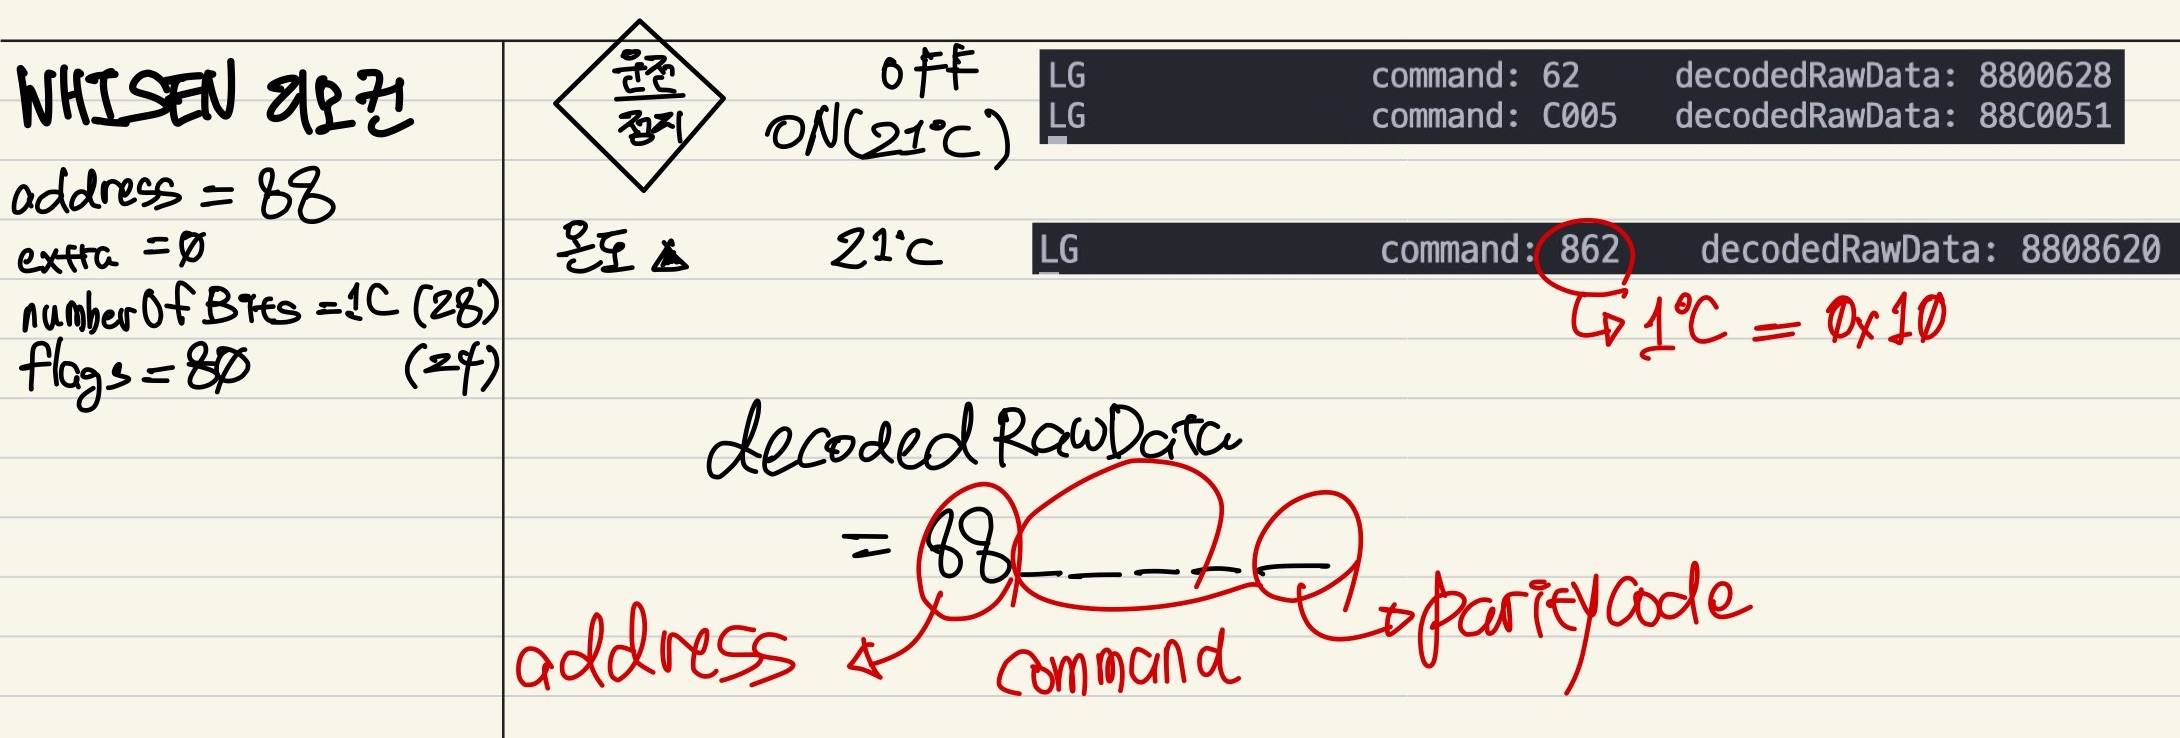 WHISEN 리모컨
address = 88
extra = 0
numberOfBits = 1C (28)
flags = 80 (24)
운전
정지
OFF
ON(21°C)
LG command: 62 decodedRawData: 8800628
LG command: C005 decodedRawData: 88C0051
온도 ▲ 21°C
LG command: 862 decodedRawData: 8808620
1°C = 0x10
decodedRawData
= 88_ _ _ _ _
address command parityCode